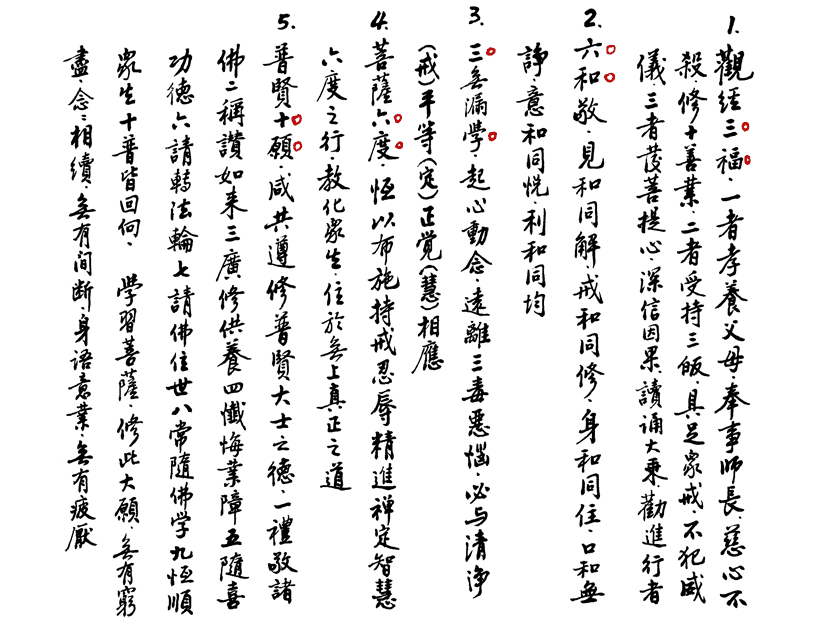 1. 觀經三福．一者孝養父母．奉事師長．慈心不
殺．修十善業．二者受持三皈．具足衆戒．不犯威
儀．三者發菩提心．深信因果．讀誦大乘．勸進行者
2. 六和敬．見和同解．戒和同修．身和同住．口和無
諍．意和同悅．利和同均
3. 三無漏學．起心動念．遠離三毒惡惱．必与清淨
(戒)平等(定)正覺(慧)相應
4. 菩薩六度．恆以布施持戒忍辱精進禅定智慧
六度之行．教化衆生．住於無上真正之道
5. 普賢十願．咸共遵修普賢大士之德．一禮敬諸
佛二稱讚如来三廣修供養四懺悔業障五隨喜
功德六請轉法輪七請佛住世八常隨佛学九恆順
衆生十普皆回向． 學習菩薩．修此大願．無有窮
盡．念念相續．無有间断．身語意業．無有疲厭